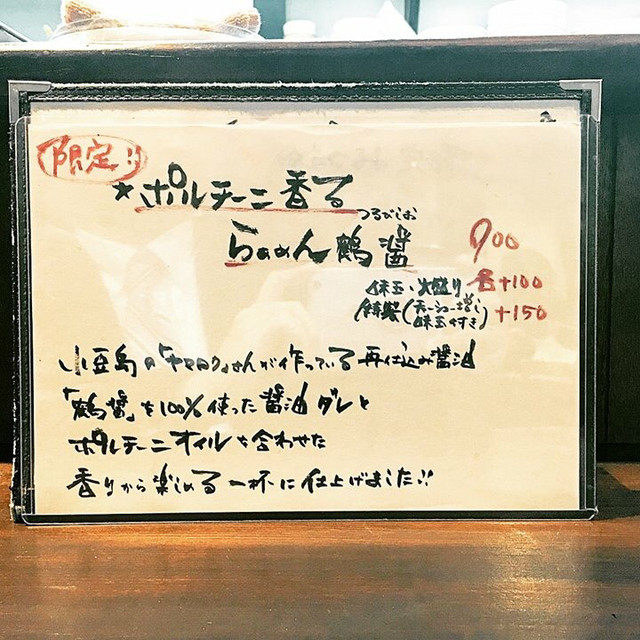 限定!!
★ポルチーニ香る
つるびしお
らぁめん鶴醤
900
味玉・大盛り 各+100
特製(チャーシュー増し 味玉付き) +150
小豆島の「ヤマロク」さんが作っている再仕込み醤油
「鶴醤」を100%使った醤油ダレと
ポルチーニオイルを合わせた
香りから楽しめる一杯に仕上げました!!